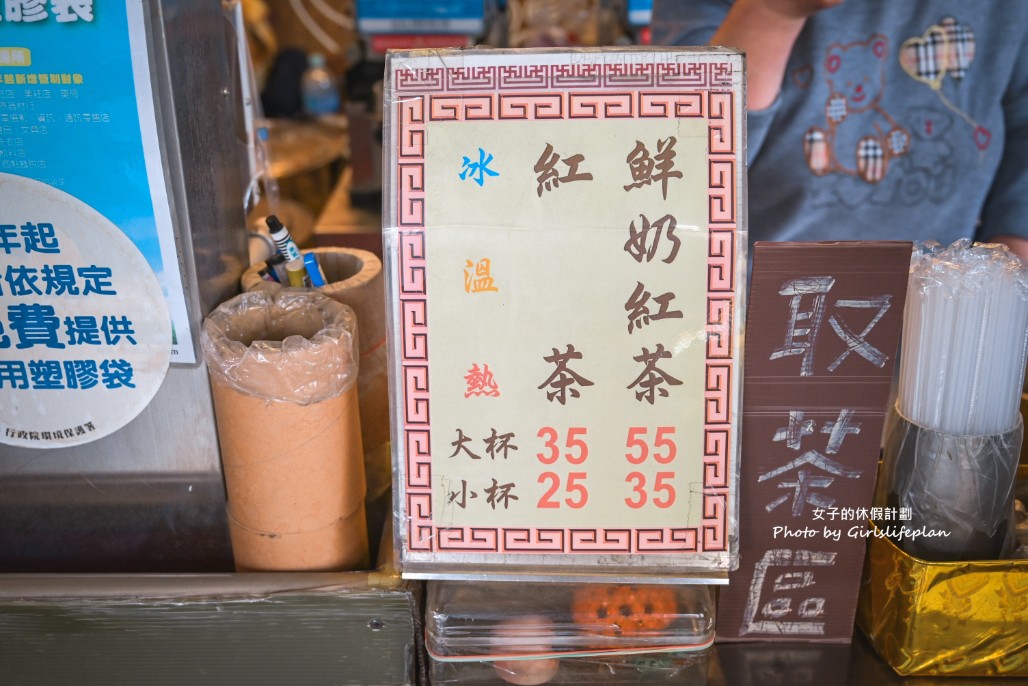 年起
依規定
免費提供
用塑膠袋
行政院環境保護署
冰
溫
熱
紅茶
鮮奶紅茶
大杯 35 55
小杯 25 35
取茶區
女子的休假計劃
Photo by Girlslifeplan